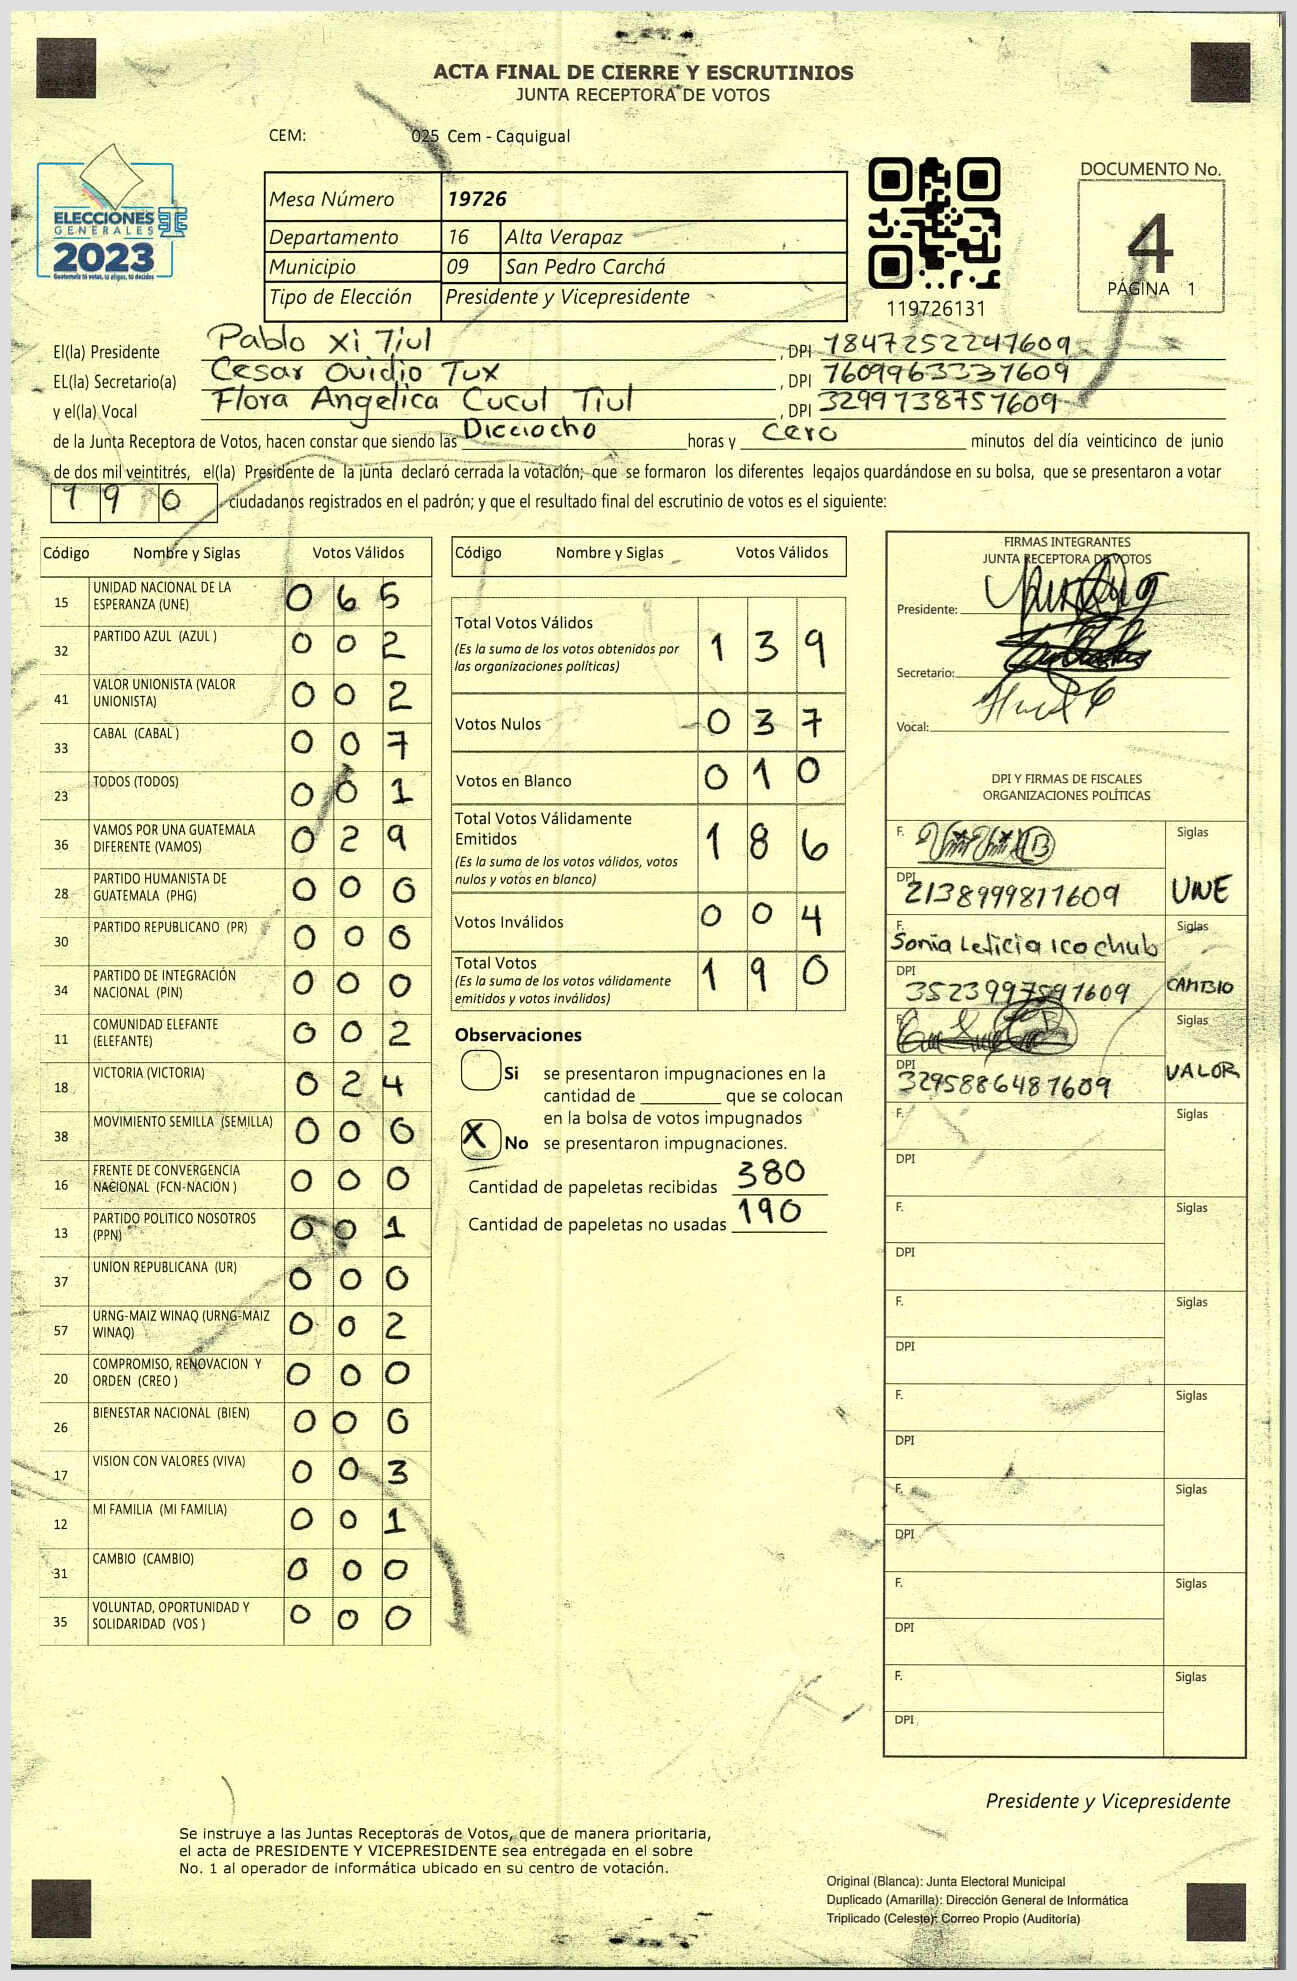 ACTA FINAL DE CIERRE Y ESCRUTINIOS
JUNTA RECEPTORA DE VOTOS
CEM: 025 Cem - Caquigual
ELECCIONES
GENERALES
2023
Guatemala tú votas, tú eliges, tú decides
Mesa Número 19726
Departamento 16 Alta Verapaz
Municipio 09 San Pedro Carchá
Tipo de Elección Presidente y Vicepresidente
119726131
DOCUMENTO No.
4
PÁGINA 1
El(la) Presidente Pablo Xi Tiul , DPI 1847252241609
EL(la) Secretario(a) Cesar Ovidio Tux , DPI 1609963331609
y el(la) Vocal Flora Angelica Cucul Tiul , DPI 3299738751609
de la Junta Receptora de Votos, hacen constar que siendo las Dieciocho horas y Cero minutos del día veinticinco de junio
de dos mil veintitrés, el(la) Presidente de la junta declaró cerrada la votación; que se formaron los diferentes legajos guardándose en su bolsa, que se presentaron a votar
190 ciudadanos registrados en el padrón; y que el resultado final del escrutinio de votos es el siguiente:
Código Nombre y Siglas Votos Válidos
15 UNIDAD NACIONAL DE LA ESPERANZA (UNE) 0 6 5
32 PARTIDO AZUL (AZUL ) 0 0 2
41 VALOR UNIONISTA (VALOR UNIONISTA) 0 0 2
33 CABAL (CABAL ) 0 0 7
23 TODOS (TODOS) 0 0 1
36 VAMOS POR UNA GUATEMALA DIFERENTE (VAMOS) 0 2 9
28 PARTIDO HUMANISTA DE GUATEMALA (PHG) 0 0 0
30 PARTIDO REPUBLICANO (PR) 0 0 0
34 PARTIDO DE INTEGRACIÓN NACIONAL (PIN) 0 0 0
11 COMUNIDAD ELEFANTE (ELEFANTE) 0 0 2
18 VICTORIA (VICTORIA) 0 2 4
38 MOVIMIENTO SEMILLA (SEMILLA) 0 0 0
16 FRENTE DE CONVERGENCIA NACIONAL (FCN-NACION ) 0 0 0
13 PARTIDO POLITICO NOSOTROS (PPN) 0 0 1
37 UNION REPUBLICANA (UR) 0 0 0
57 URNG-MAIZ WINAQ (URNG-MAIZ WINAQ) 0 0 2
20 COMPROMISO, RENOVACION Y ORDEN (CREO ) 0 0 0
26 BIENESTAR NACIONAL (BIEN) 0 0 0
17 VISION CON VALORES (VIVA) 0 0 3
12 MI FAMILIA (MI FAMILIA) 0 0 1
31 CAMBIO (CAMBIO) 0 0 0
35 VOLUNTAD, OPORTUNIDAD Y SOLIDARIDAD (VOS ) 0 0 0
Código Nombre y Siglas Votos Válidos
Total Votos Válidos 1 3 9
(Es la suma de los votos obtenidos por
las organizaciones políticas)
Votos Nulos 0 3 7
Votos en Blanco 0 1 0
Total Votos Válidamente
Emitidos 1 8 6
(Es la suma de los votos válidos, votos
nulos y votos en blanco)
Votos Inválidos 0 0 4
Total Votos 1 9 0
(Es la suma de los votos válidamente
emitidos y votos inválidos)
Observaciones
Si se presentaron impugnaciones en la
cantidad de ________ que se colocan
en la bolsa de votos impugnados
X No se presentaron impugnaciones.
Cantidad de papeletas recibidas 380
Cantidad de papeletas no usadas 190
FIRMAS INTEGRANTES
JUNTA RECEPTORA DE VOTOS
Presidente:
Secretario:
Vocal:
DPI Y FIRMAS DE FISCALES
ORGANIZACIONES POLÍTICAS
F. Siglas
DPI 2138999811609 UNE
F. Sonia Leticia Ico chub Siglas
DPI 3523997591609 CAMBIO
F. Siglas
DPI 3295886481609 VALOR
F. Siglas
DPI
F. Siglas
DPI
F. Siglas
DPI
F. Siglas
DPI
F. Siglas
DPI
F. Siglas
DPI
F. Siglas
DPI
Presidente y Vicepresidente
Se instruye a las Juntas Receptoras de Votos, que de manera prioritaria,
el acta de PRESIDENTE Y VICEPRESIDENTE sea entregada en el sobre
No. 1 al operador de informática ubicado en su centro de votación.
Original (Blanca): Junta Electoral Municipal
Duplicado (Amarilla): Dirección General de Informática
Triplicado (Celeste): Correo Propio (Auditoría)